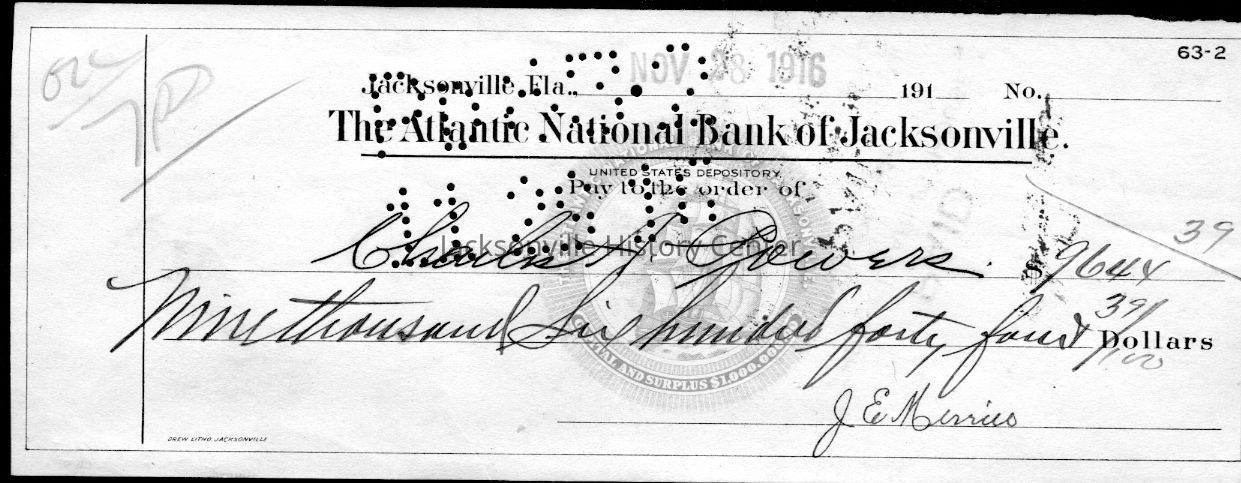 63-2
Jacksonville, Fla., NOV 28 1916 191 No.
The Atlantic National Bank of Jacksonville.
UNITED STATES DEPOSITORY.
Pay to the order of
Charles J. Powers $ 9644 39
Jacksonville History Center
Nine thousand Six hundred forty four 39/100 Dollars
CAPITAL AND SURPLUS $1,000,000
J E Merrill
DREW LITHO. JACKSONVILLE
PAID